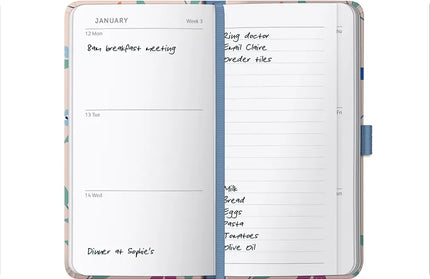 JANUARY Week 3
12 Mon
8am breakfast meeting
13 Tue
14 Wed
Dinner at Sophie's
Ring doctor
Email Claire
Order tiles
Milk
Bread
Eggs
Pasta
Tomatoes
Olive Oil